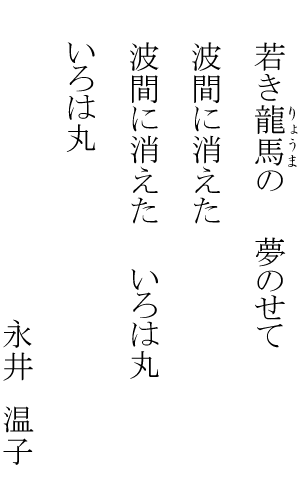 若き龍馬の　夢のせて
りょうま
波間に消えた
波間に消えた　いろは丸
いろは丸
永井　温子